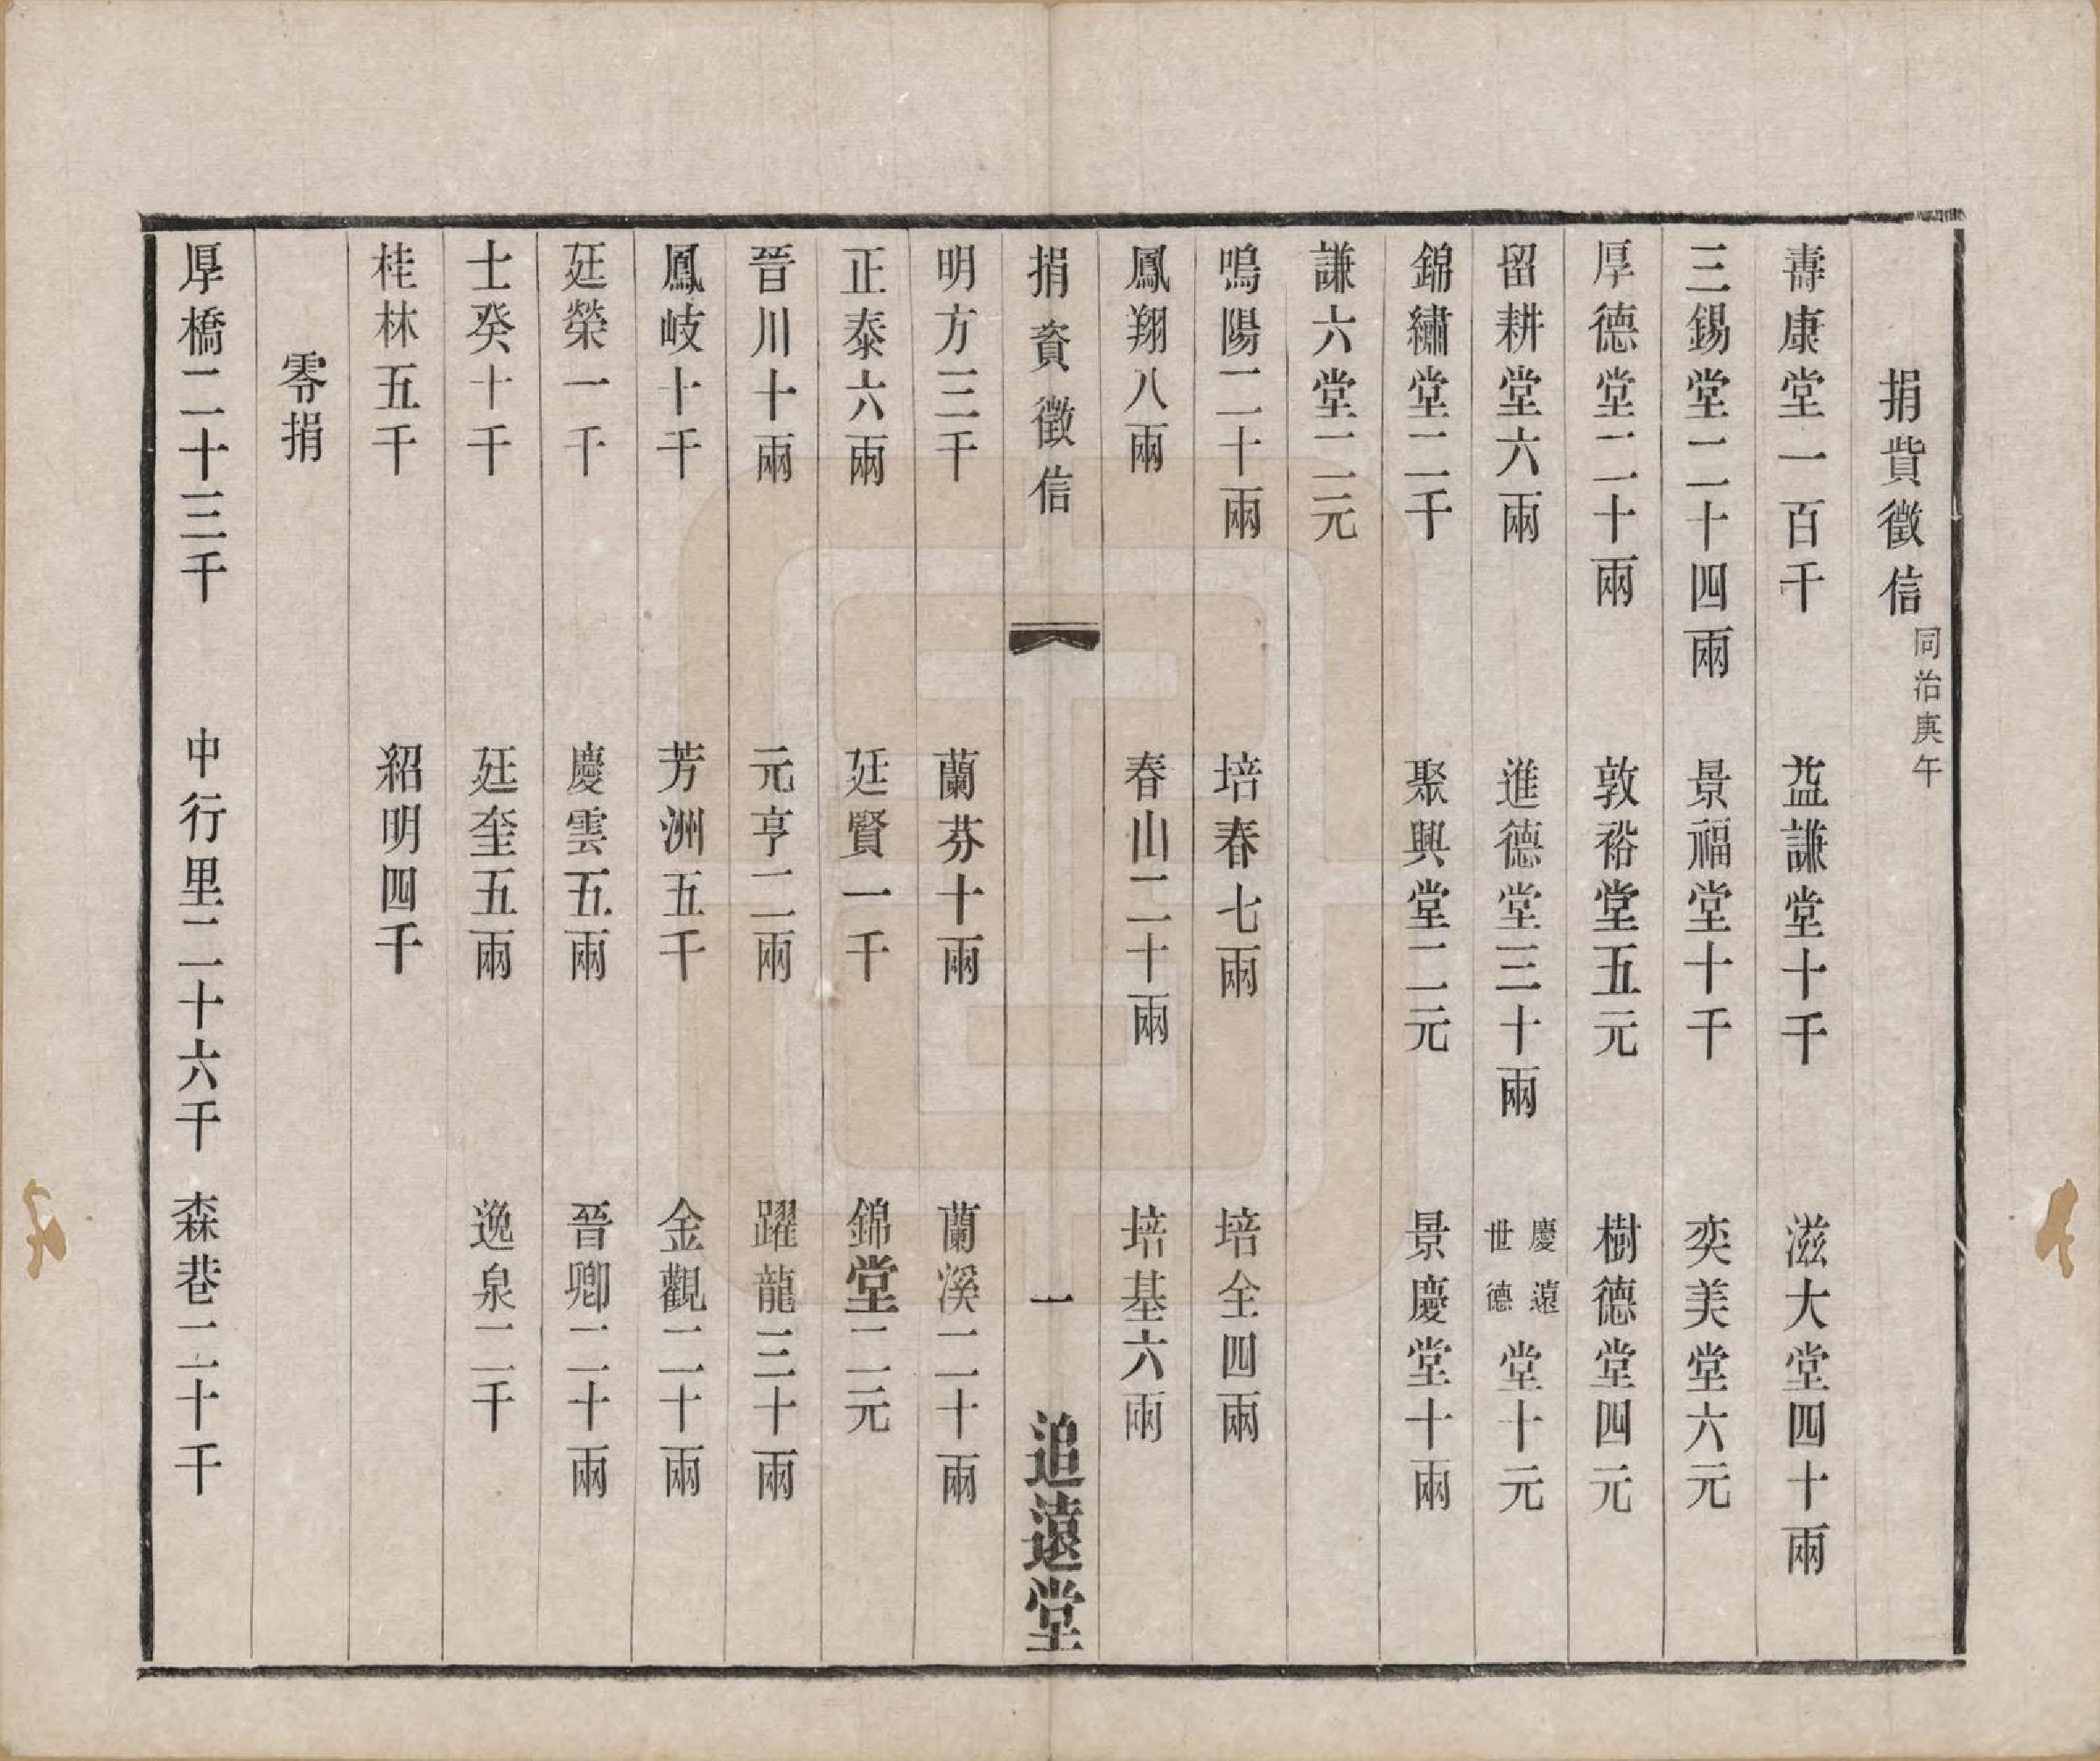 捐貲徵信同治庚午
壽康堂一百千 益謙堂十千 滋大堂四十兩
三錫堂二十四兩 景福堂十千 奕美堂六元
厚德堂二十兩 敦裕堂五元 樹德堂四元
留耕堂六兩 進德堂三十兩 慶遠世德堂十元
錦繡堂二千 聚興堂二元 景慶堂十兩
謙六堂二元
鳴陽二十兩 培春七兩 培全四兩
鳳翔八兩 春山二十兩 培基六兩
捐資徵信 一 追遠堂
明方三千 蘭芬十兩 蘭溪二十兩
正泰六兩 廷賢一千 錦堂二元
晉川十兩 元亨二兩 躍龍三十兩
鳳岐十千 芳洲五千 金觀二十兩
廷榮一千 慶雲五兩 晉卿二十兩
士癸十千 廷奎五兩 逸泉二千
桂林五千 紹明四千
零捐
厚橋二十三千 中行里二十六千 森巷二十千